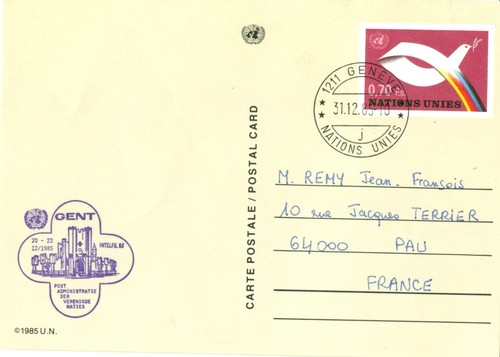 0,70 F.S.
NATIONS UNIES
1211 GENEVE
31.12.85-10
j
NATIONS UNIES
CARTE POSTALE / POSTAL CARD
M. REMY Jean-François
10 rue Jacques TERRIER
64000 PAU
FRANCE
GENT
20 - 22
12/1985
INTELFIL 85
POST
ADMINISTRATIE
DER
VERENIGDE
NATIES
©1985 U.N.